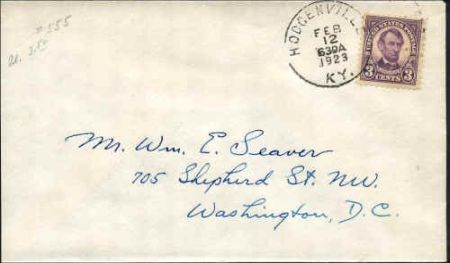 #555
HODGENVILLE
FEB
12
630A
1923
KY.
UNITED STATES POSTAGE
3 CENTS 3
Mr. Wm. E. Seaver
705 Shepherd St. NW.
Washington, D.C.